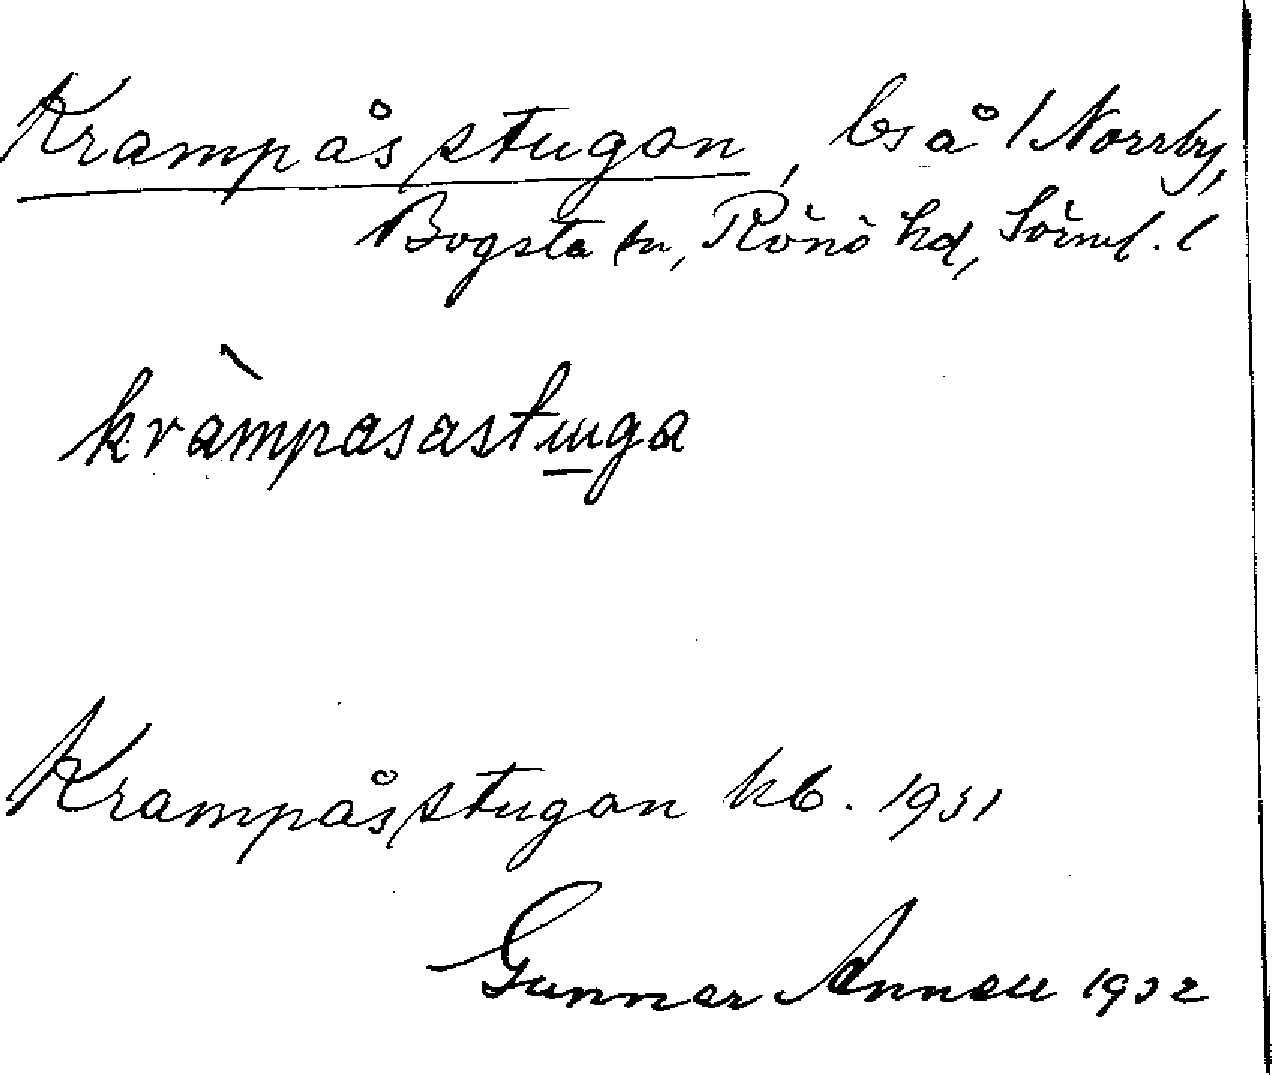 Krampåsstugan, bs å 1 Norrby,
Bogsta sn, Rönö hd, Sörml. l
kràmpasastuga
Krampåsstugan kb. 1931
Gunnar Annell 1932